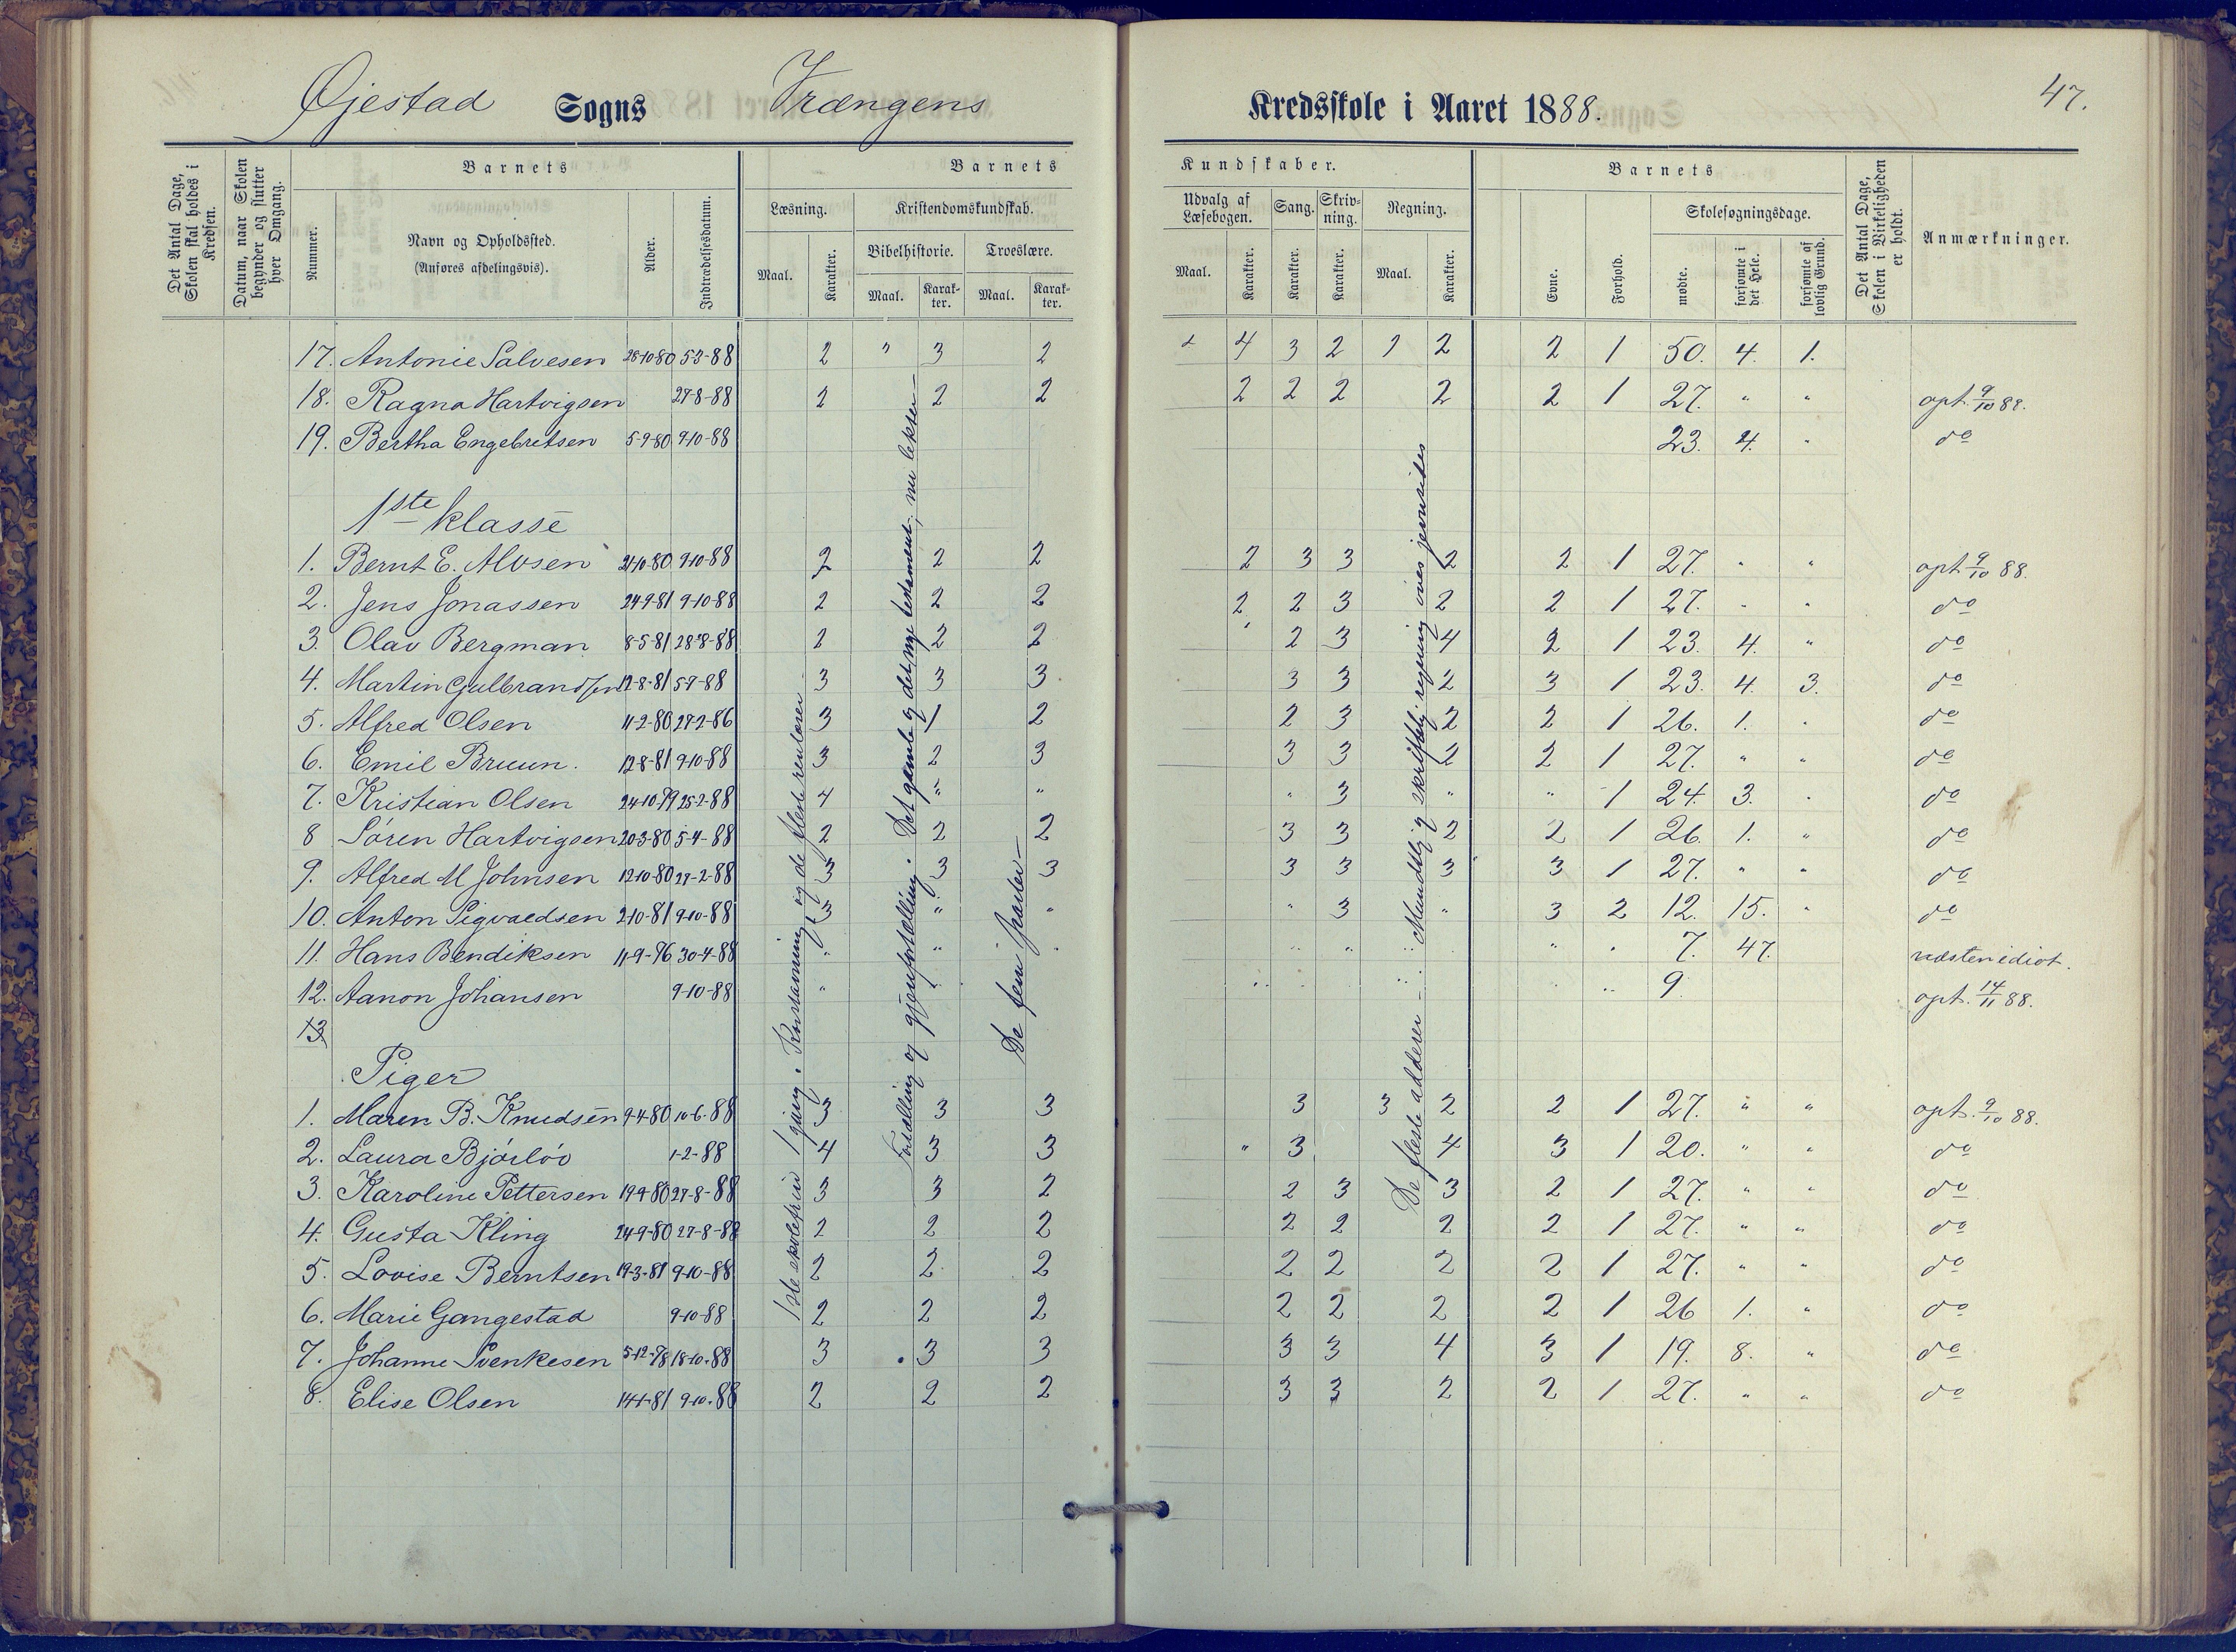 Øjestad Sogns Vrængens Kredsskole i Aaret 1888. 47.
Det Antal Dage, Skolen skal holdes i Kredsen.
Datum, naar Skolen begynder og slutter hver Omgang.
Barnets
Nummer.
Navn og Opholdssted.
(Anføres afdelingsvis).
Alder.
Indtrædelsesdatum.
Barnets
Læsning.
Maal. Karakter.
Kristendomskundskab.
Bibelhistorie. Troeslære.
Maal. Karakter. Maal. Karakter.
Kundskaber.
Udvalg af Læsebogen. Sang. Skrivning. Regning.
Maal. Karakter. Karakter. Karakter. Maal. Karakter.
Barnets
Evne. Forhold.
Skolesøgningsdage.
mødte. forsømte i det Hele. forsømte af lovlig Grund.
Det Antal Dage, Skolen i Virkeligheden er holdt.
Anmærkninger.
17. Antonie Salvesen 28-10-80 5-3-88 2 " 3 2 4 3 2 2 2 1 50. 4. 1.
18. Ragna Hartvigsen 27-8-88 2 2 2 2 2 2 2 2 1 27. " " opt. 9/10 88.
19. Bertha Engebretsen 5-9-80 9-10-88 23. 4. " do
1ste klasse
1. Bernt E. Alvsen 21-10-80 9-10-88 2 2 2 2 3 3 2 2 1 27. " " opt. 9/10 88.
2. Jens Jonassen 24-9-81 9-10-88 2 2 2 2 2 3 2 2 1 27. " " do
3. Olav Bergman 8-5-81 28-8-88 2 2 2 2 3 4 2 1 23. 4. " do
4. Martin Gulbrandsen 12-8-81 5-9-88 3 3 3 3 3 2 3 1 23. 4. 3. do
5. Alfred Olsen 11-2-80 27-2-86 3 1 2 2 3 2 2 1 26. 1. " do
6. Emil Bruun. 12-8-81 9-10-88 3 2 3 3 3 2 2 1 27. " " do
7. Kristian Olsen 24-10-79 25-2-88 4 " " " 3 " " 1 24. 3. " do
8 Sören Hartvigsen 20-3-80 5-4-88 2 2 2 3 3 2 2 1 26. 1. " do
9. Alfred M Johnsen 12-10-80 27-2-88 3 3 3 3 3 3 3 1 27. " " do
10. Anton Sigvaldsen 2-10-81 9-10-88 3 " " " 3 " 3 2 12. 15. " do
11. Hans Bendiksen 11-9-76 30-4-88 " " " " " " " 7. 47. næsten idiot.
12. Aanon Johansen 9-10-88 " 9. opt. 14/11 88.
13
Piger
1. Maren B. Knudsen 9-4-80 10-6-88 3 3 3 3 3 2 2 1 27. " " opt. 9/10 88.
2. Laura Bjørløv 1-2-88 4 3 3 " 3 4 3 1 20. " " do
3. Karoline Pettersen 19-9-80 27-8-88 3 3 2 2 3 3 2 1 27. " " do
4. Gusta Kling 24-9-80 27-8-88 2 2 2 2 2 2 2 1 27. " " do
5. Lovise Berntsen 19-3-81 9-10-88 2 2 2 2 2 2 2 1 27. " " do
6. Marie Gangestad 9-10-88 2 2 2 2 2 2 2 1 26 1. " do
7. Johanne Svenkesen 5-12-78 18-10-88 3 3 3 3 3 4 3 1 19. 8. " do
8. Elise Olsen 14-1-81 9-10-88 2 2 2 3 3 2 2 1 27. " " do
1ste skoletrin 1 gang. og de fleste renlæser
Fortælling og gjenfortælling. Det gamle og det nye testament, nu lekser
De fem parter
De fleste adderer Mundtlig og skriftlig regning øves jevnsides